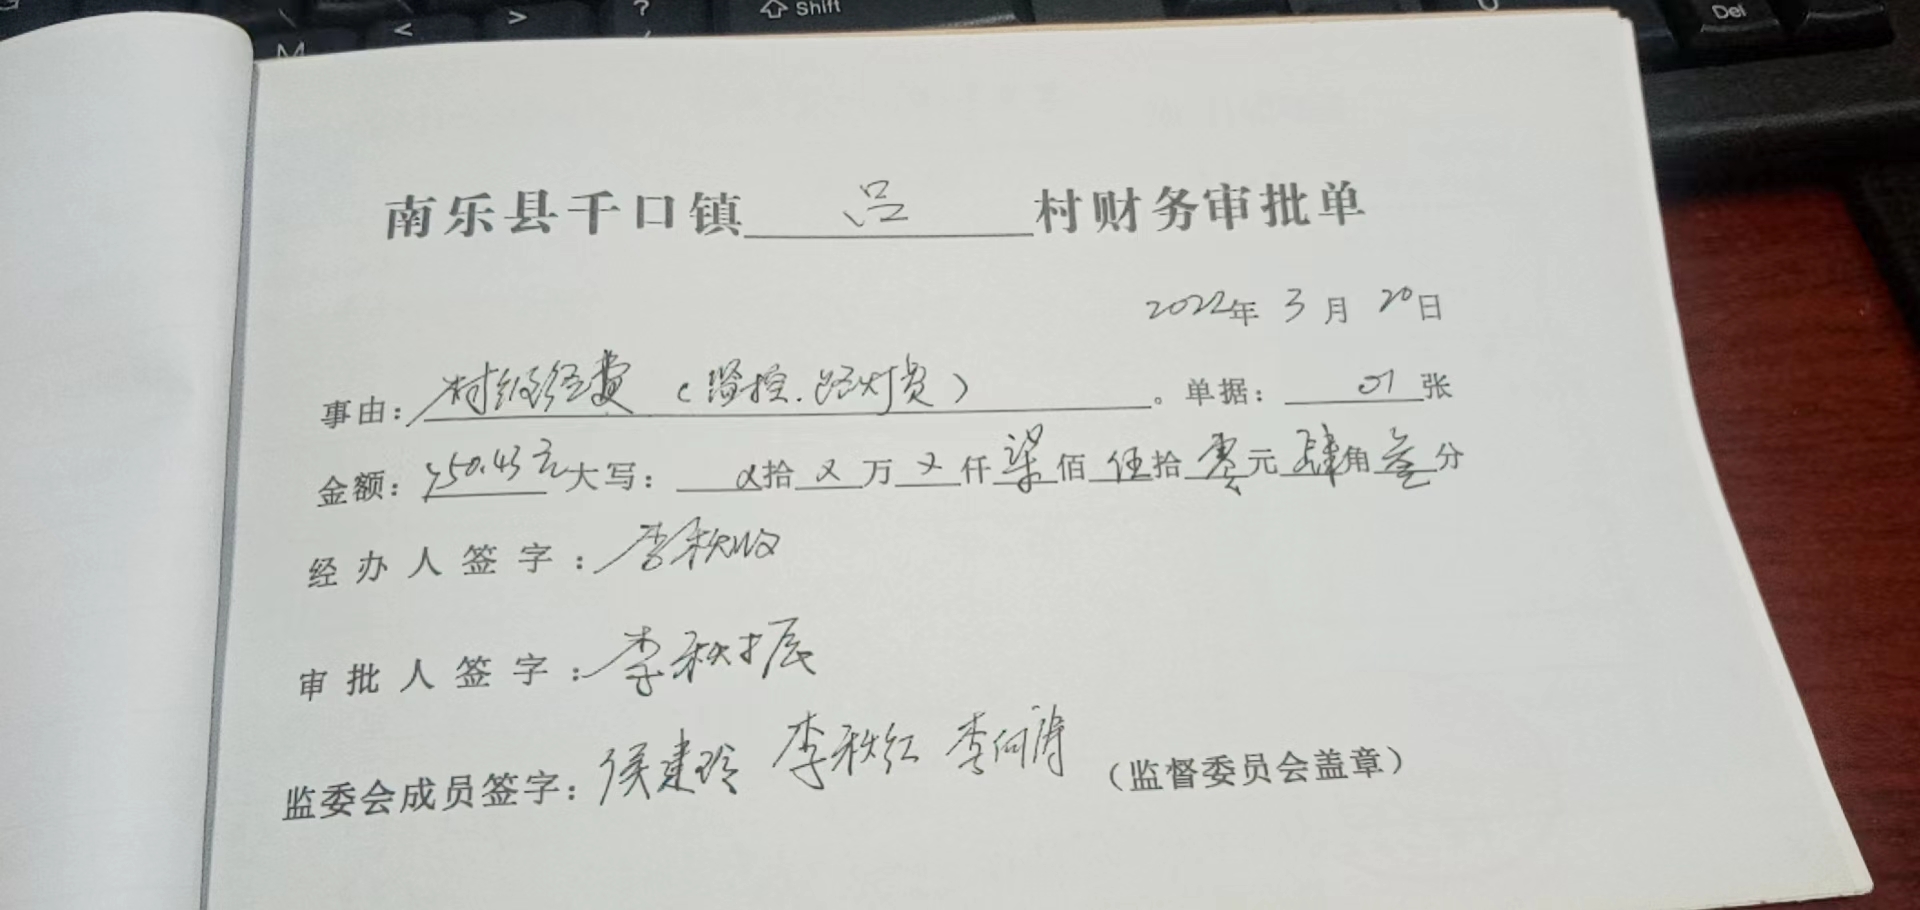 南乐县千口镇 吕 村财务审批单
2022年 3月 20日
事由：村级经费（监控．路灯费）。单据：01张
金额：750.43元 大写：X拾X万X仟柒佰伍拾零元肆角叁分
经办人签字：李秋收
审批人签字：李秋振
监委会成员签字：侯建玲 李秋红 李向涛（监督委员会盖章）
Shift
Del
M
<
>
?